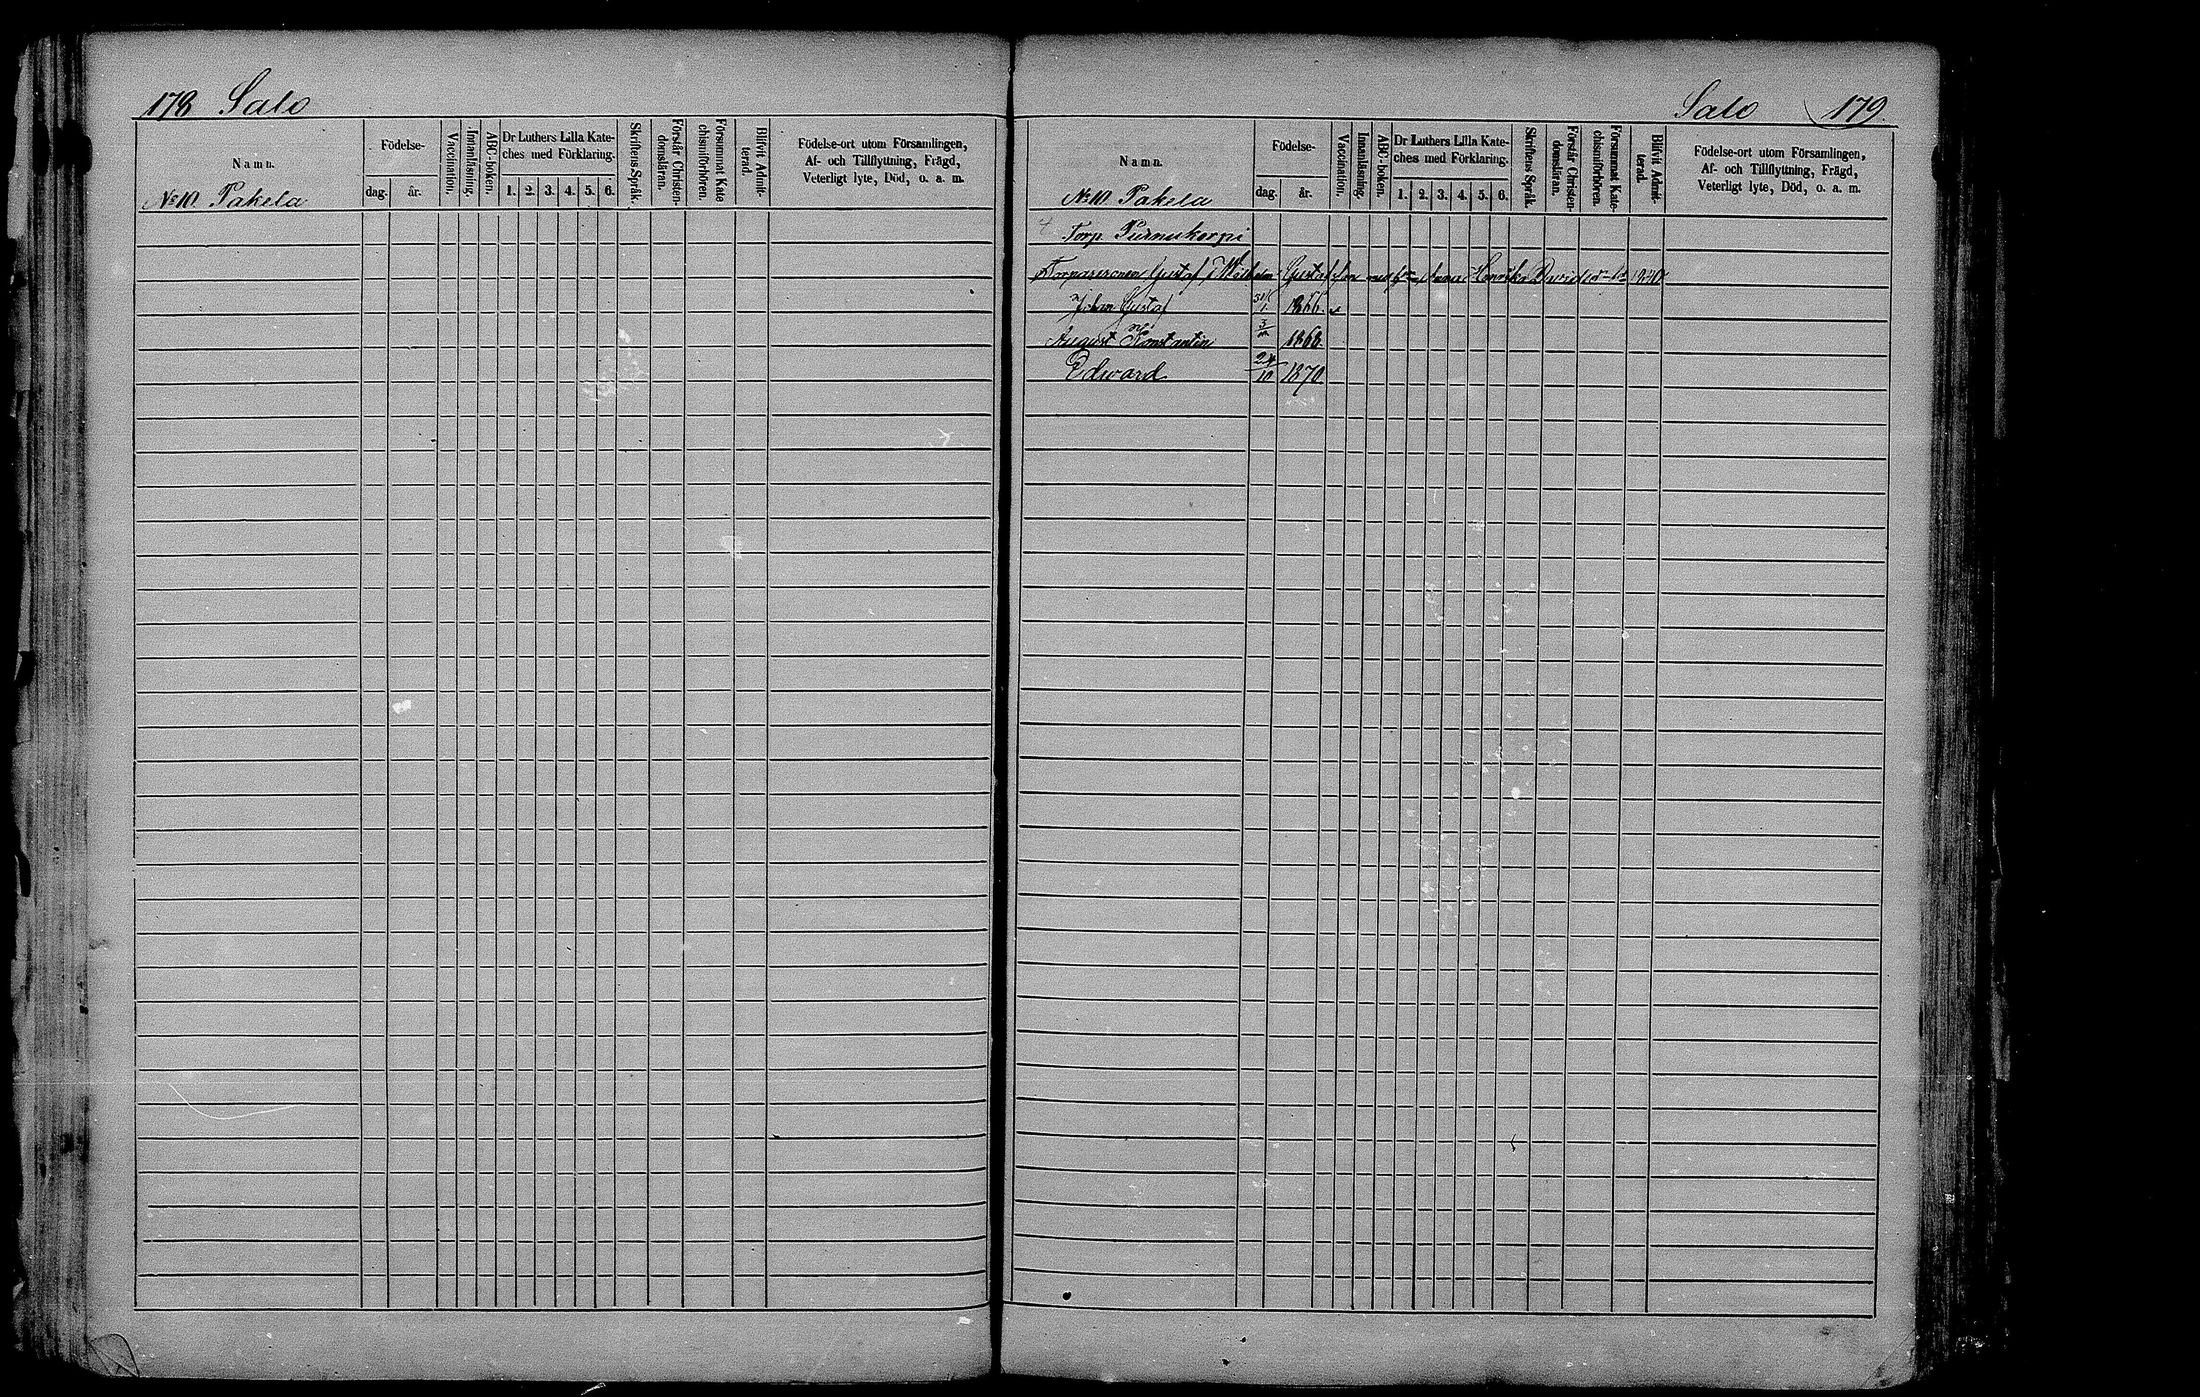 178 Salo
Namn.
No 10 Pakela
Födelse-
dag.
år.
Vaccination.
Innanläsning.
ABC-boken.
Dr Luthers Lilla Kate-
ches med Förklaring.
1. 2. 3. 4. 5. 6.
Skriftens Språk.
Förstår Christen-
domsläran.
Försummat Kate
chismiförhören.
Blifvit Admit-
terad.
Födelse-ort utom Församlingen,
Af- och Tillflyttning, Frägd,
Veterligt lyte, Död, o. a. m.
Salo 179.
Namn.
No 10 Pakela
Födelse-
dag.
år.
Vaccination.
Innanläsning.
ABC-boken.
Dr Luthers Lilla Kate-
ches med Förklaring.
1. 2. 3. 4. 5. 6.
Skriftens Språk.
Förstår Christen-
domsläran.
Försummat Kate-
chismiförhören.
Blifvit Admit-
terad.
Födelse-ort utom Församlingen,
Af- och Tillflyttning, Frägd,
Veterligt lyte, Död, o. a. m.
Torp. Purnukorpi
Gustaf Wilhelm Gustafsson med Anna Henrika
Johan Gustaf 1866
August Konstantin 1868
Edward 24/10 1870